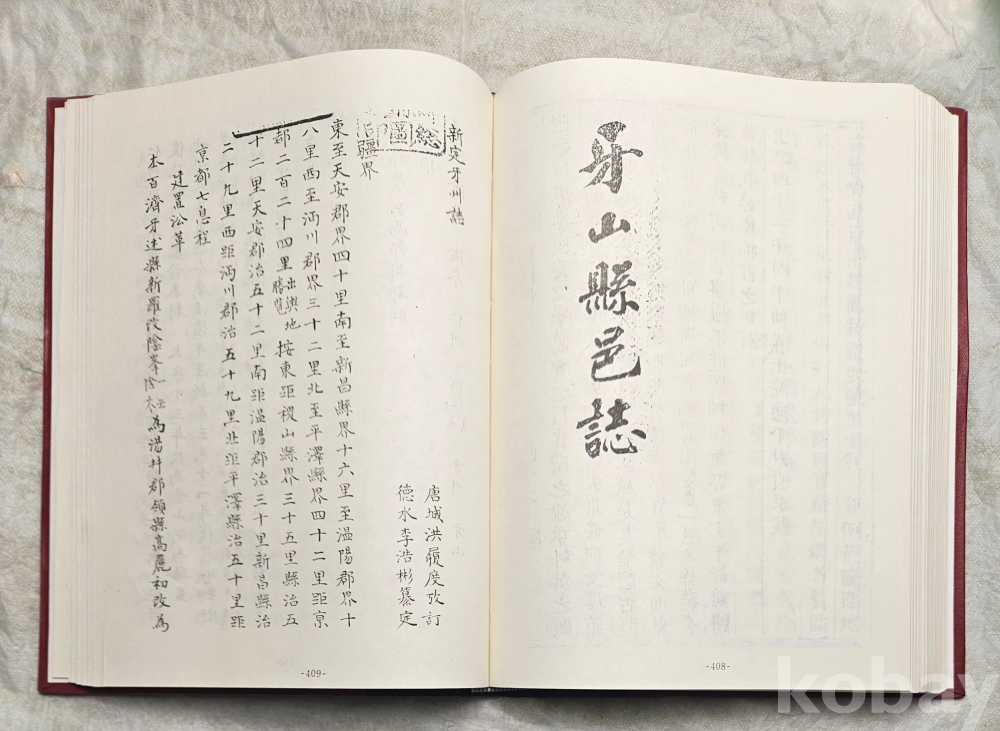 牙山縣邑誌
-408-
新定牙州誌
唐城洪履度攷訂
德水李浩彬纂定
疆界
東至天安郡界四十里南至新昌縣界十六里至溫陽郡界十
八里西至沔川郡界三十二里北至平澤縣界四十二里距京
都二百二十四里出輿地勝覽按東距稷山縣界三十五里縣治五
十二里天安郡治五十二里南距溫陽郡治三十里新昌縣治
二十九里西距沔川郡治五十九里北距平澤縣治五十里距
京都七息程
建置沿革
本百濟牙述縣新羅改陰峯為湯井郡領縣高麗初改為
-409-
kobay